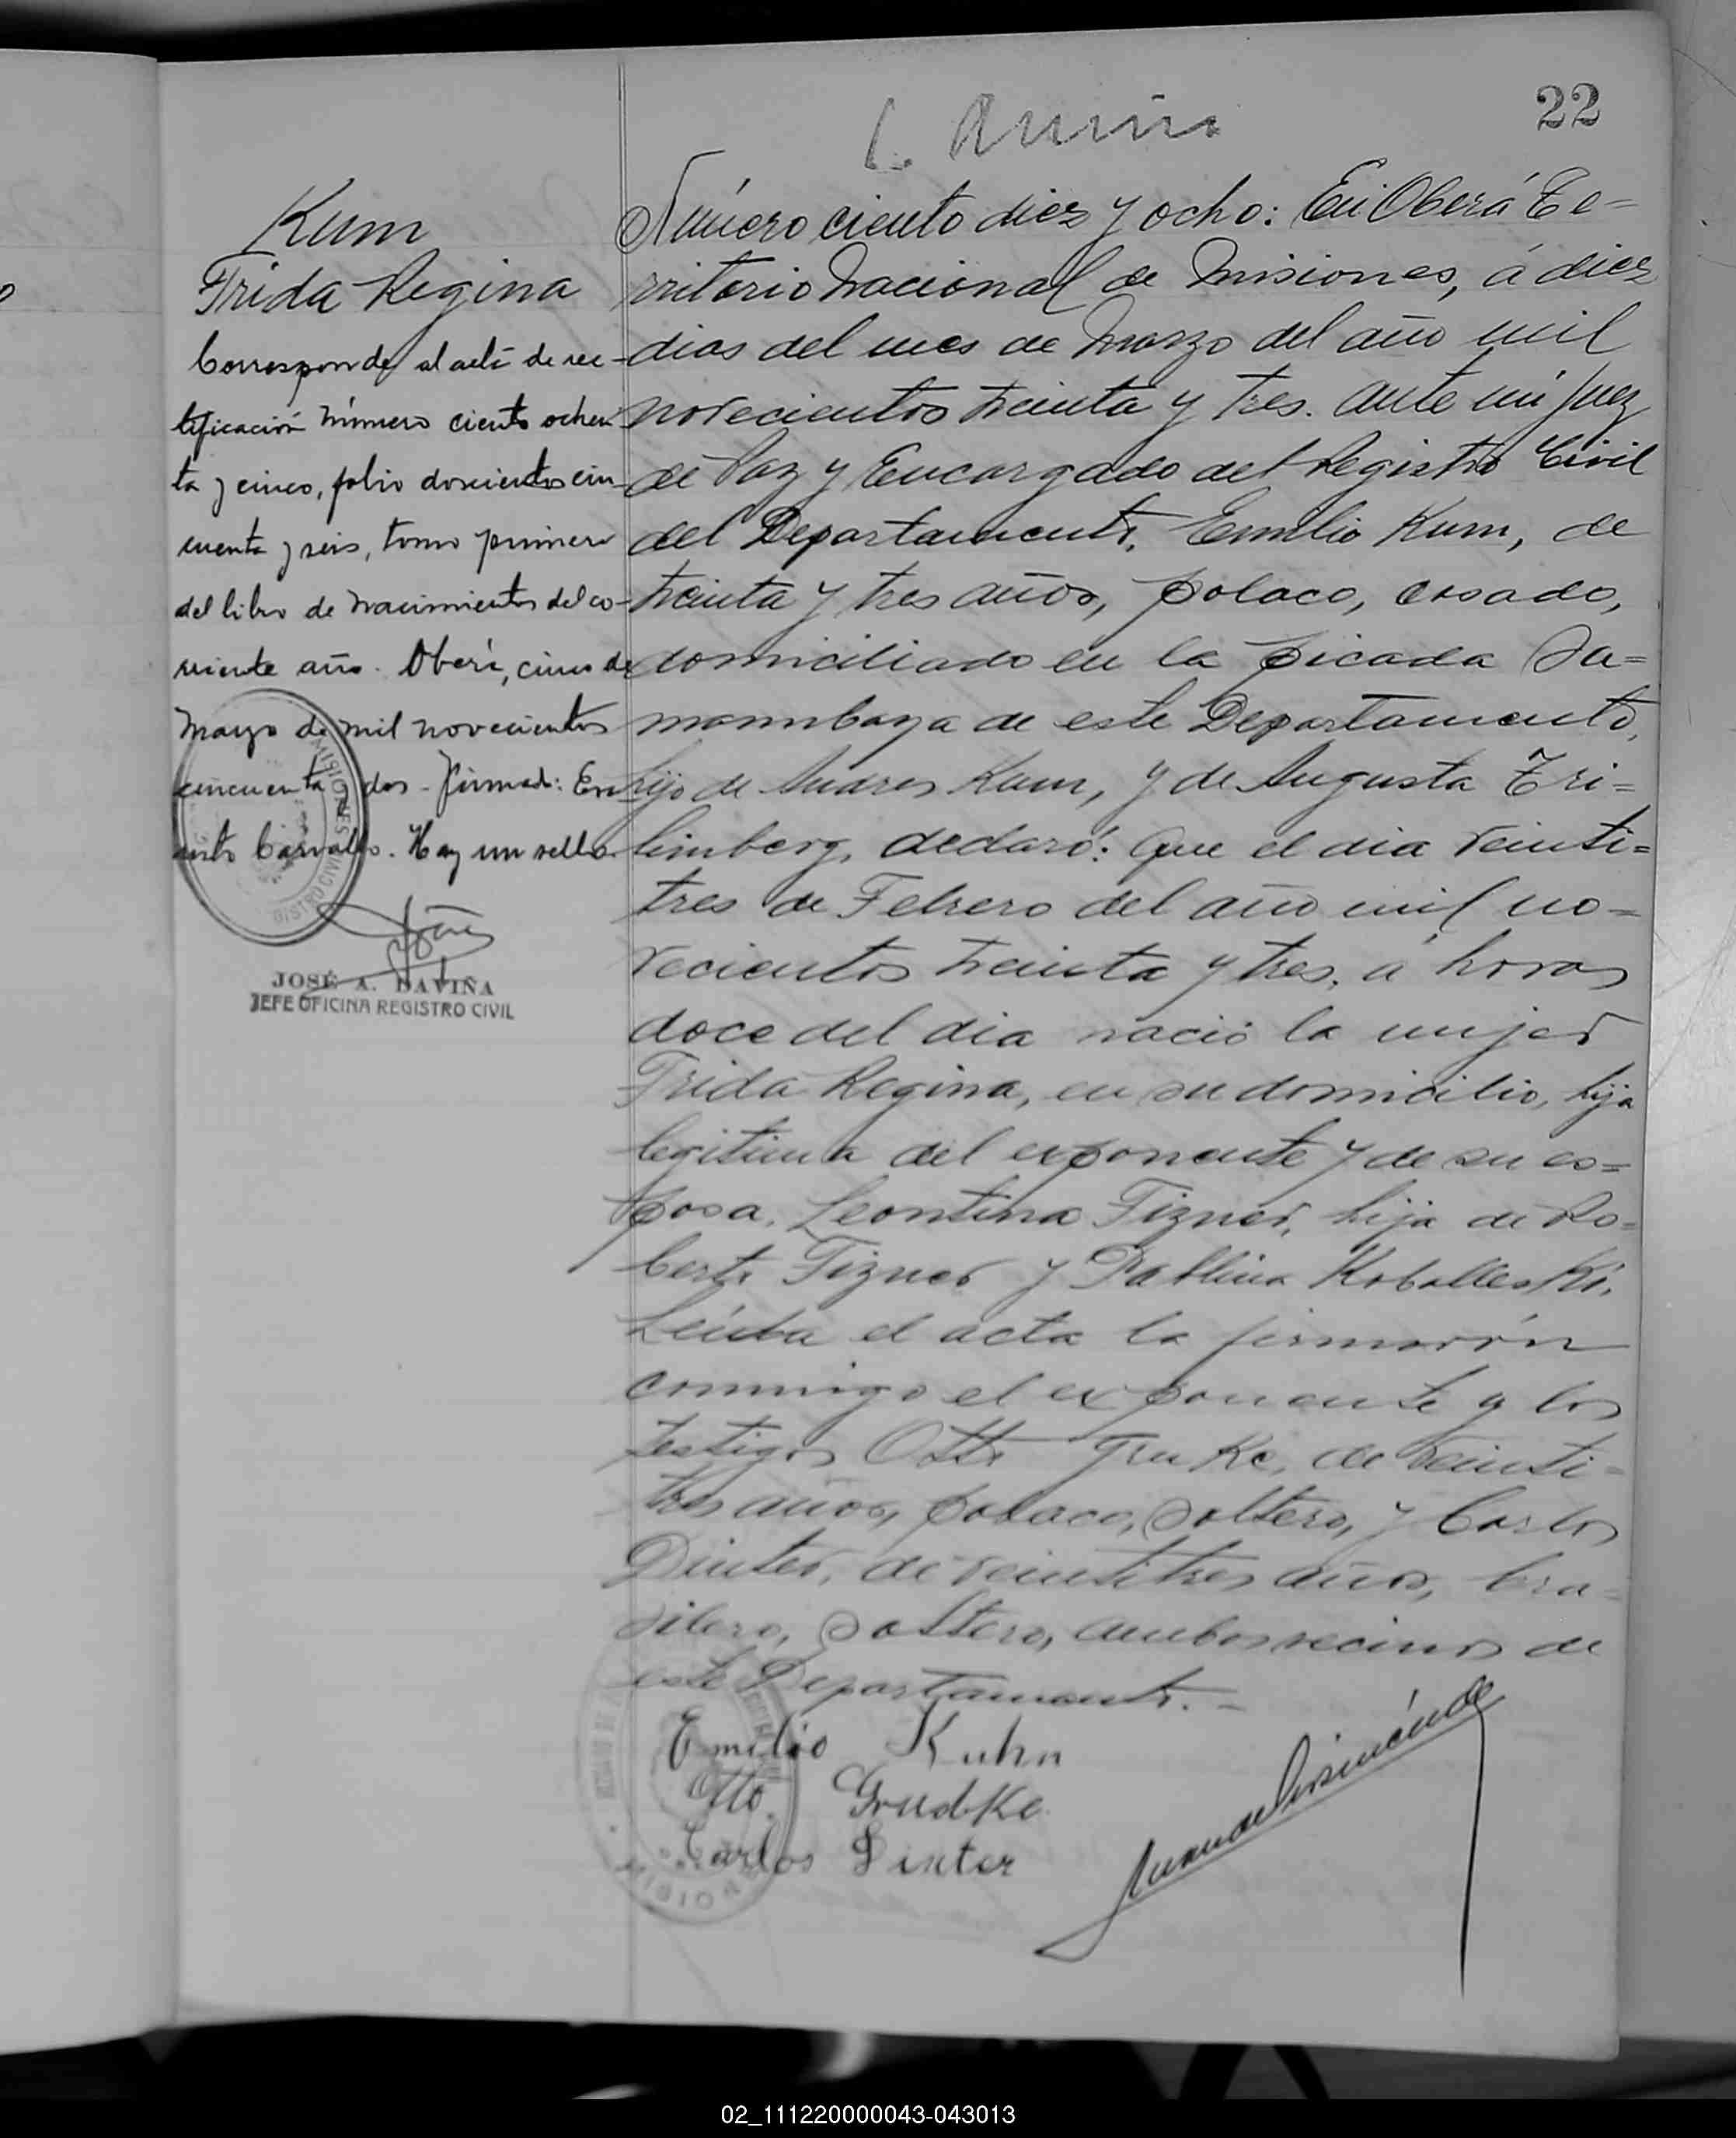 22
Kum
Frida Regina
Corresponde al acta de rec-
tificación número ciento ochen
ta y cinco, folio doscientos cin-
cuenta y seis, tomo primero
del libro de nacimientos del co-
rriente año. Oberá, cinco de
mayo de mil novecientos
cincuenta y dos - firmado: Er-
nesto Carvallo. Hay un sello.
JOSÉ A. DAVIÑA
JEFE OFICINA REGISTRO CIVIL
Número ciento diez y ocho: En Oberá Te=
rritorio Nacional de Misiones, á diez
dias del mes de Marzo del año mil
novecientos treinta y tres. ante mi Juez
de Paz y Encargado del Registro Civil
del Departamento, Emilio Kum, de
treinta y tres años, polaco, casado,
domiciliado en la picada Sa=
mambaya de este Departamento,
hijo de Andres Kum, y de Augusta Tri=
limberg, declaró: Que el dia veinti=
tres de Febrero del año mil no=
vecientos treinta y tres, á horas
doce del dia nació la mujer
Frida Regina, en su domicilio, hija
legitima del exponente y de su es=
posa, Leontina Tizner, hija de Ro=
berto Tizner y Paulina Koballeski.
Leída el acta la firmarón
conmigo el exponente y los
testigos Otto Gruke, de veinti-
tres años, polaco, soltero, y Carlos
Dinter, de veintitres años, bra-
silero, soltero, ambos vecinos de
este Departamento. -
Emilio Kuhn
Otto Grudke
Carlos Dinter
02_111220000043-043013